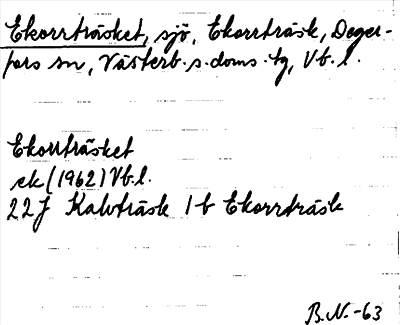 Ekorrträsket, sjö, Ekorrträsk, Deger-
fors sn, Västerb. s. doms. tg, Vb. l.
Ekorrträsket
ek (1962) Vb. l.
22J Kalvträsk 1b Ekorrträsk
B.N.-63